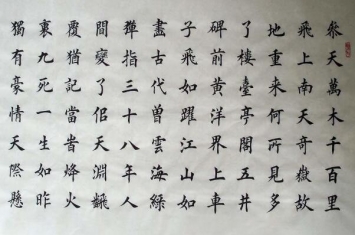 叅天萬木千百里
飛上南天奇嶽故
地重來何所見多
了樓臺亭閣五井
碑前黃洋界上車
子飛如躍江山如
畫古代曾雲海綠
彈指三十八年人
間變了佀天淵翻
覆猶記當旹烽火
裏九死一生如昨
獨有豪情天際懸